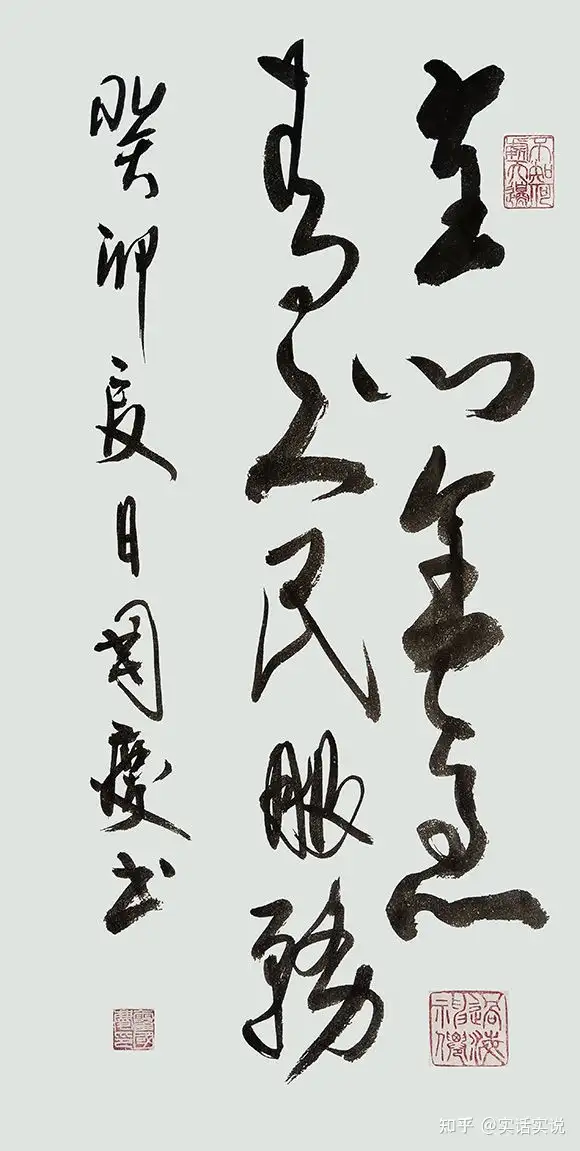 全心全意
為人民服務
癸卯夏日國慶书
知乎 @实话实说